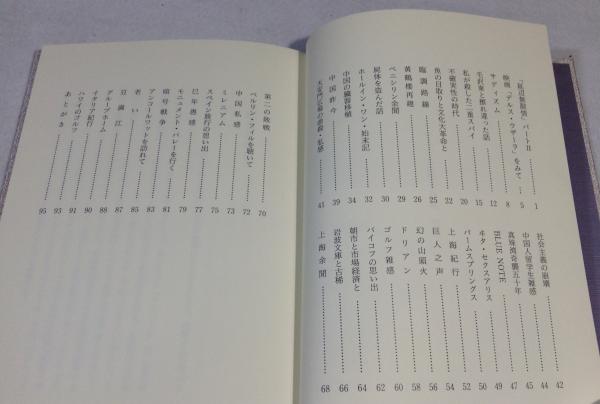 「延辺無限情」パートⅡ 1
映画 をみて 5
サディズム 8
毛沢東と擦れ違った話 12
私が殺した二重スパイ 15
不確実性の時代 20
魚の目取りと文化大革命と 22
臨調路線 25
黄鶴楼再現 26
ペニシリン余聞 29
屍体を盗んだ話 30
ホールイン・ワン・始末記 32
中国の臓器移植 34
中国昨今 39
天安門広場の ・私感 41
社会主義の崩壊 42
中国人留学生雑感 44
真珠湾奇襲五十年 45
BLUE NOTE 47
ヰタ・セクスアリス 49
パームスプリングス 50
上海紀行 52
巨人之声 54
幻の山頭火 56
ドリアン 58
ゴルフ雑感 60
バイコフの思い出 62
朝市と市場経済と 64
岩波文庫と古稀 66
上海余聞 68
第二の敗戦 70
ベルリン・フィルを聴いて 72
中国私感 73
ミレニアム 75
スペイン旅行の思い出 77
巳年愚感 79
モニュメント・バレーを行く 81
暗号戦争 83
アンコールワットを訪れて 85
老い 87
豆満江 88
グループホーム 90
イタリア紀行 91
ハワイのゴルフ 93
あとがき 95